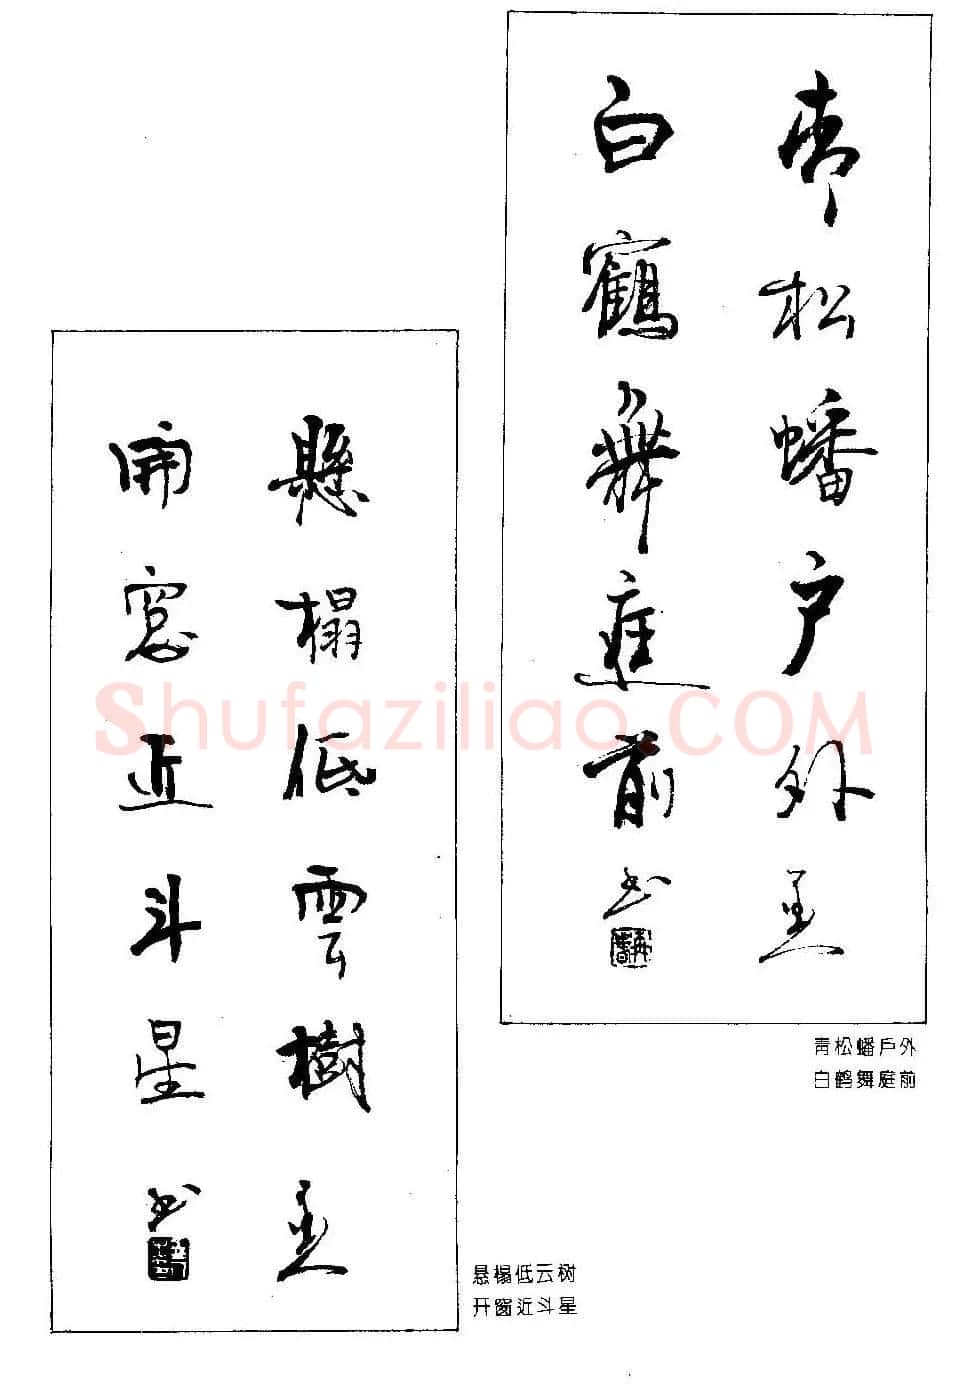 青松蟠户外
白鶴舞庭前
書
青松蟠戶外
白鹤舞庭前
懸榻低雲樹
開窗近斗星
書
悬榻低云树
开窗近斗星
Shufaziliao.COM